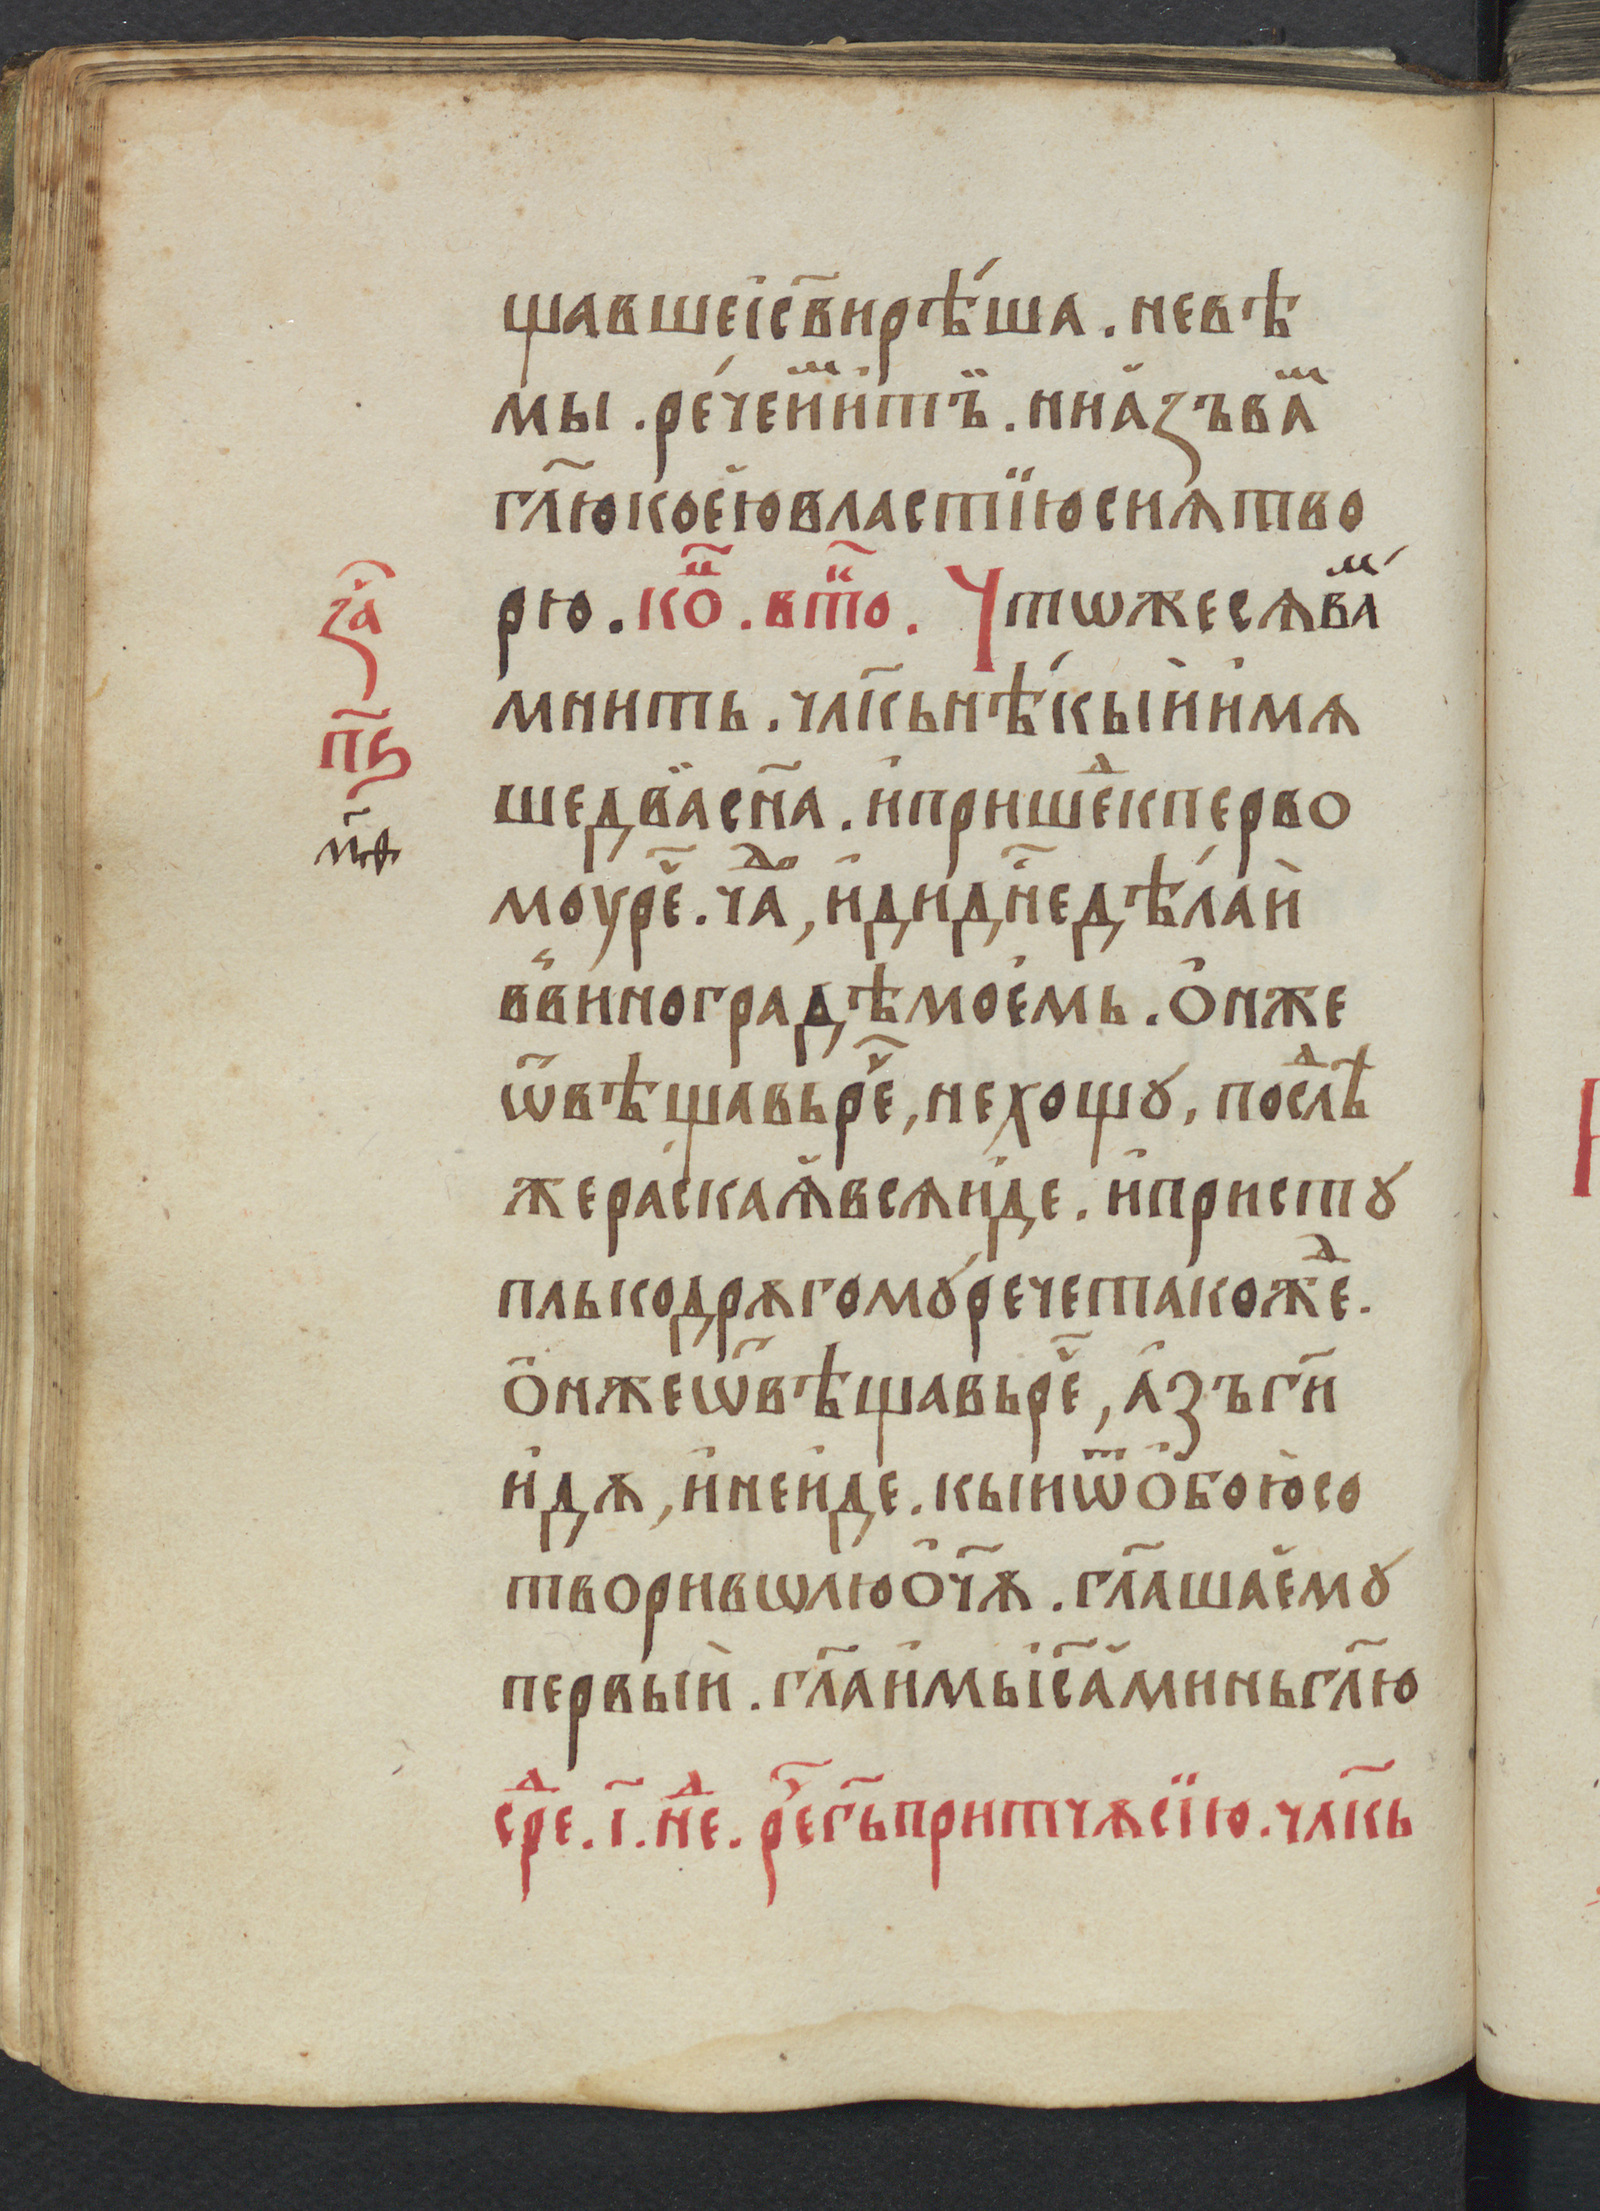 щавшеі҆с҃вирѣ́ша. невѣ
мы. ре́чеи҆ⷨи҆тъ̏. нна̏зъваⷨ
гл҃юкое̏ювластїюсиѧтво
рю. ко̏҃. вт҃о. Чтѡжесѧваⷨ
мнить. чл҃кьнѣ́кыйи҆мѧ
шедва̏сн҃а. и҆пришеⷣкперво
моуре҃ⷱ. чаⷣо, и҆дид҃неде́лай
ввⷩиноградѣмое҆мь. о҆нже
ѿвѣщавьре҃ⷱ, нехощꙋ, послѣⷣ
жераскаѧ̏всѧи҆де. и҆пристꙋ
плькодрѫгомꙋ́речетакожеⷣ.
о҆нжеѿвѣщавьре҃ⷱ, а҆зъги҃
и҆дѫ, и҆неи҆де. кыиѿо҆бою̀со
творивѡлюо҆ч҃ѫ. гл҃ашае̏мꙋ
первый. гл҃аи҆мьі҆с҃а̏миньгл҃ю
среⷣ. і҃. неⷣ. ре҃ⷱгь҃притчѫсїю. чл҃кь
за҃
п҃ѕ
мⷴ҃